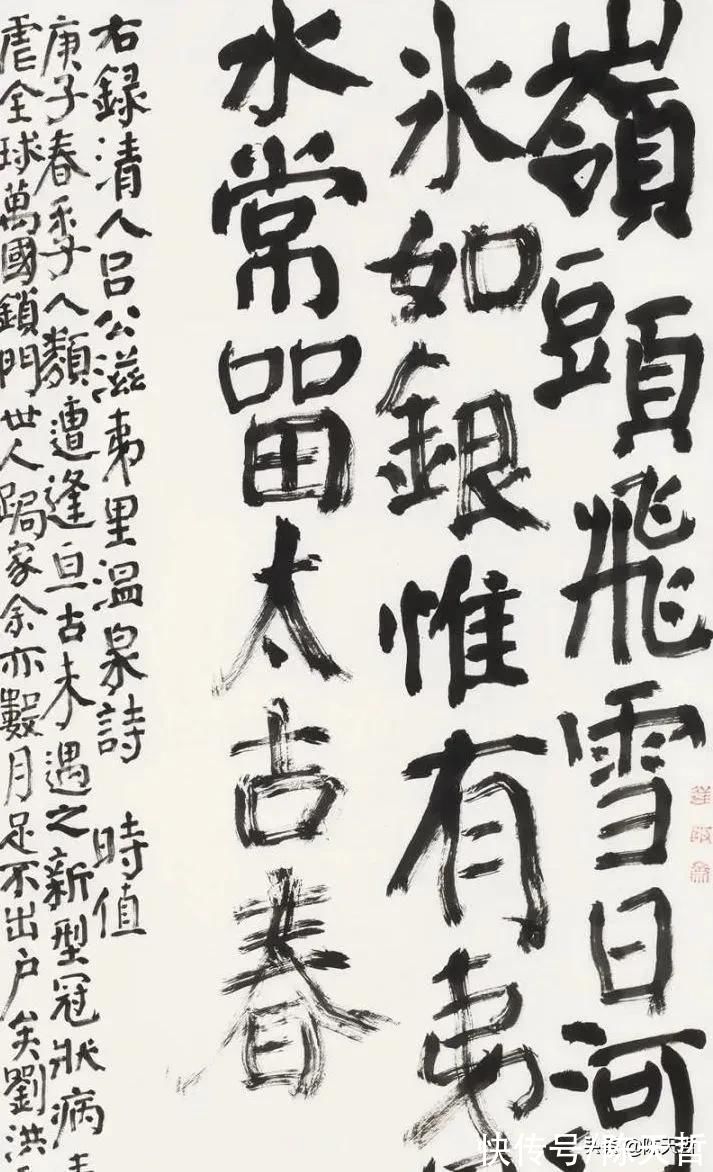 嶺頭飛雪日河
氷如銀惟有弟
水常畱太古春
右録清人呂公滋弟里温泉詩 時值
庚子春季人類遭逢亘古未遇之新型冠狀病
虐全球萬國鎖門世人跼家余亦數月足不出户矣劉洪
快传号/陈天哲
头条@陈天哲